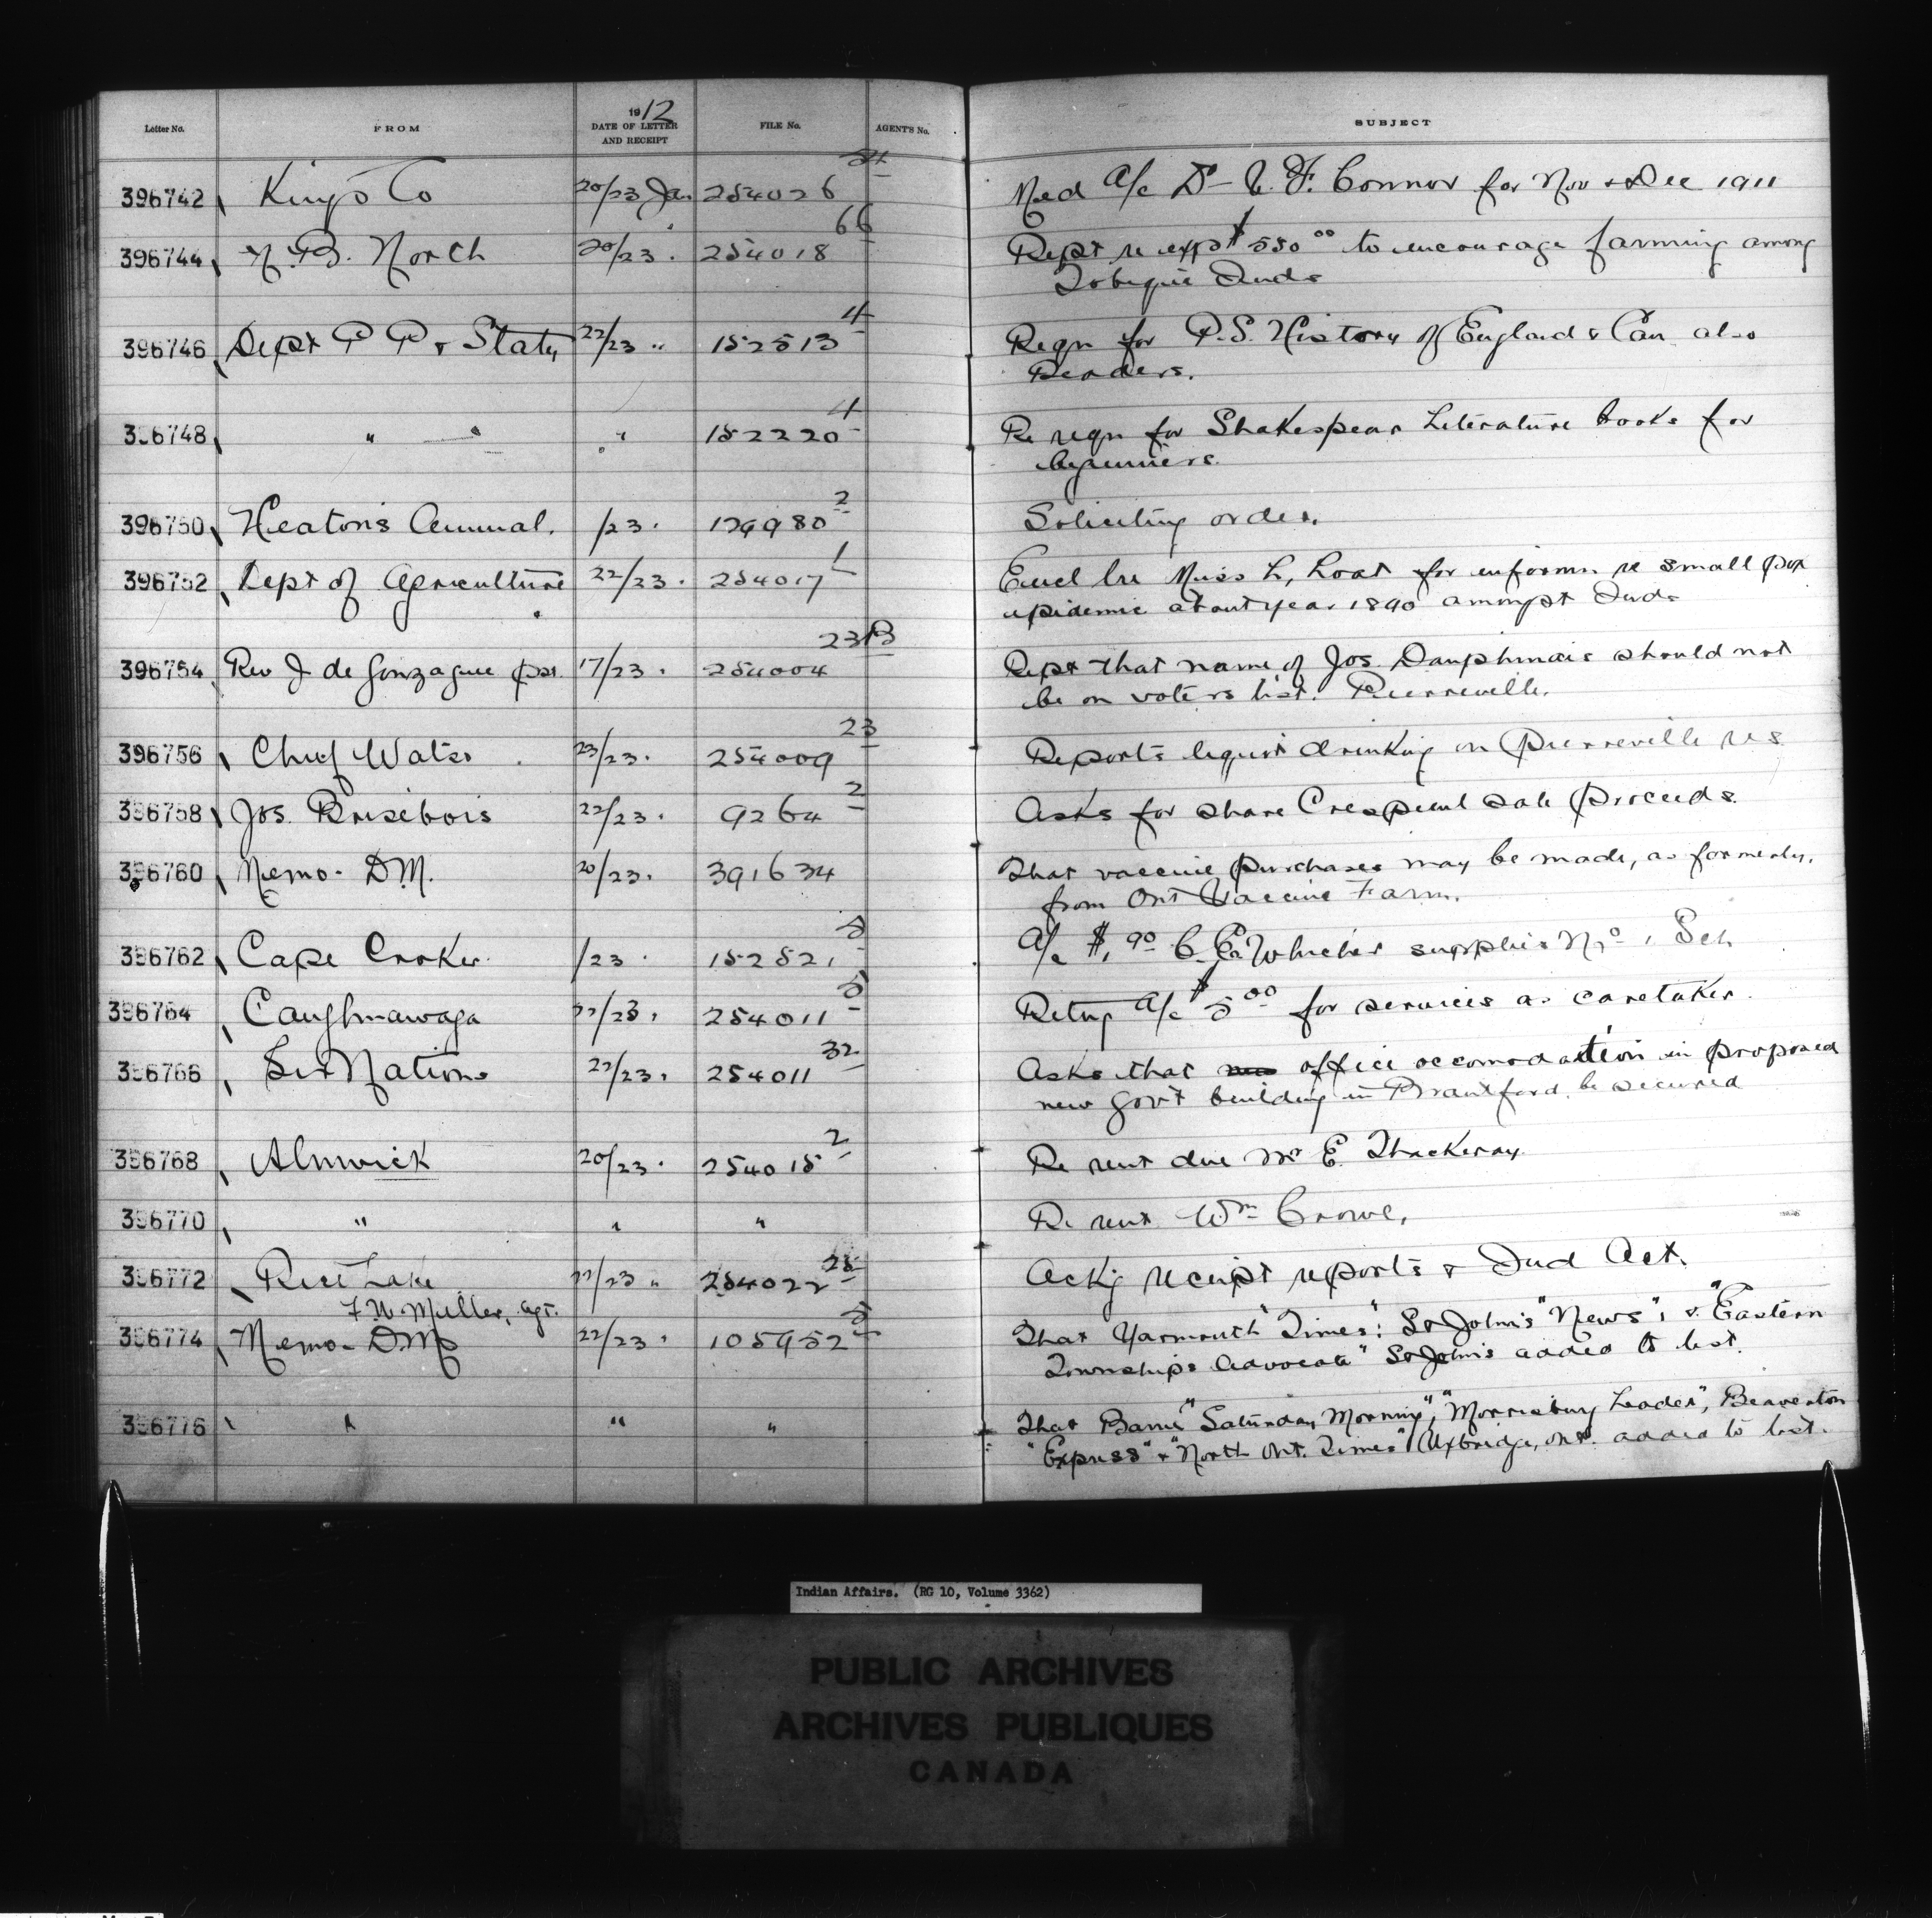 Letter No. FROM 1912 DATE OF LETTER AND RECEIPT FILE No. AGENT'S No. SUBJECT
396742 Kings Co 20/23 Jan 254026 Med a/c Dr Connor for Nov & Dec 1911
396744 N.B. North 20/23 " 254018 66 Rept re exp $550 00 to encourage farming among
Tobique Inds
396746 Dept P P & Staty 22/23 " 152513 4 Reqn for P.S. History of England & Can also
Readers.
396748 " " " 152220 4 Re reqn for Shakespear Literature books for
beginners.
396750 Heaton's Annual. /23 " 179980 2 Soliciting order.
396752 Dept of Agriculture 22/23 " 254017 1 Encl lre Miss L, Loat for informn re small pox
epidemic about year 1890 amongst Inds
396754 Rev J de Gonzague pst. 17/23 " 254004 23B Rept that name of Jos. Dauphinais should not
be on voters list. Pierreville.
396756 Chief Watso 23/23 " 254009 23 Reports liquor drinking on Pierreville res
396758 Jos. Brisebois 22/23 " 9264 2 Asks for share Crespieul sale proceeds.
396760 Memo- D.M. 20/23 " 391634 That vaccine purchases may be made, as formerly,
from Ont Vaccine Farm.
396762 Cape Croker /23 " 152521 5 a/c $1.90 C. E. Whicher supplies No 1 Sch
396764 Caughnawaga 22/23 " 254011 5 Retng a/c $5 00 for services as caretaker.
396766 Six Nations 22/23 " 254011 32 Asks that office accomodation in proposed
new Gov't building in Brantford be secured
396768 Alnwick 20/23 " 254015 2 Re rent due Mr E. Thackeray
396770 " " " Re rent Wm Crowe,
396772 Rice Lake 22/23 " 254022 25 Ackg receipt reports & Ind Act.
F. W. Miller, agt.
396774 Memo- D.M. 22/23 " 105952 5 That Yarmouth "Times": St John's "News", & "Eastern
Townships Advocate" St John's added to list.
396776 " " " That Barrie "Saturday Morning", "Morrisburg Leader", Beaverton
"Express" & "North Ont. Times" Uxbridge, Ont. added to list.
Indian Affairs. (RG 10, Volume 3362)
PUBLIC ARCHIVES
ARCHIVES PUBLIQUES
CANADA